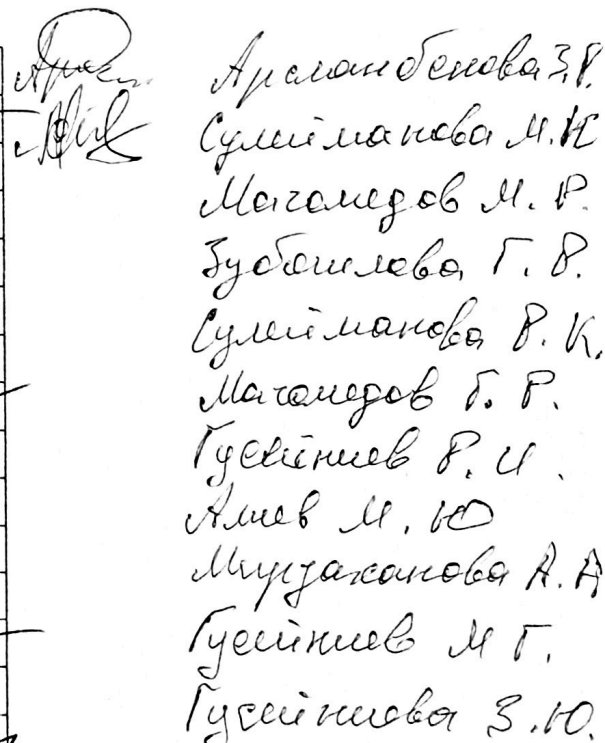 Арсланбекова З.Р.
Сулейманова М.К
Магомедов М.Р.
Зубаилова Г.Р.
Сулейманова Р.К.
Магомедов Г.Р.
Гусейниев Р.И.
Алиев М.Ю
Мирзаханова А.А
Гусейниев М Г.
Гусейниева З.Ю.